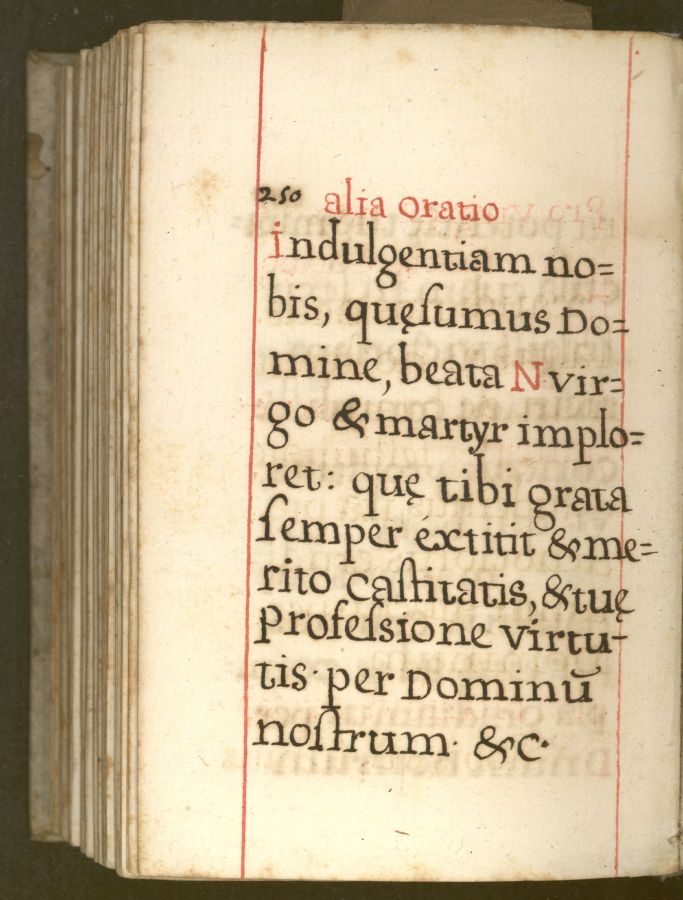 250 alia oratio
Indulgentiam no=
bis, quęſumus Do=
mine, beata N vir=
go & martyr implo=
ret: quę tibi grata
ſemper éxtitit & me=
rito caſtitatis, & tuę
profeſsione virtu-
tis· per Dominū
noſtrum· &c·